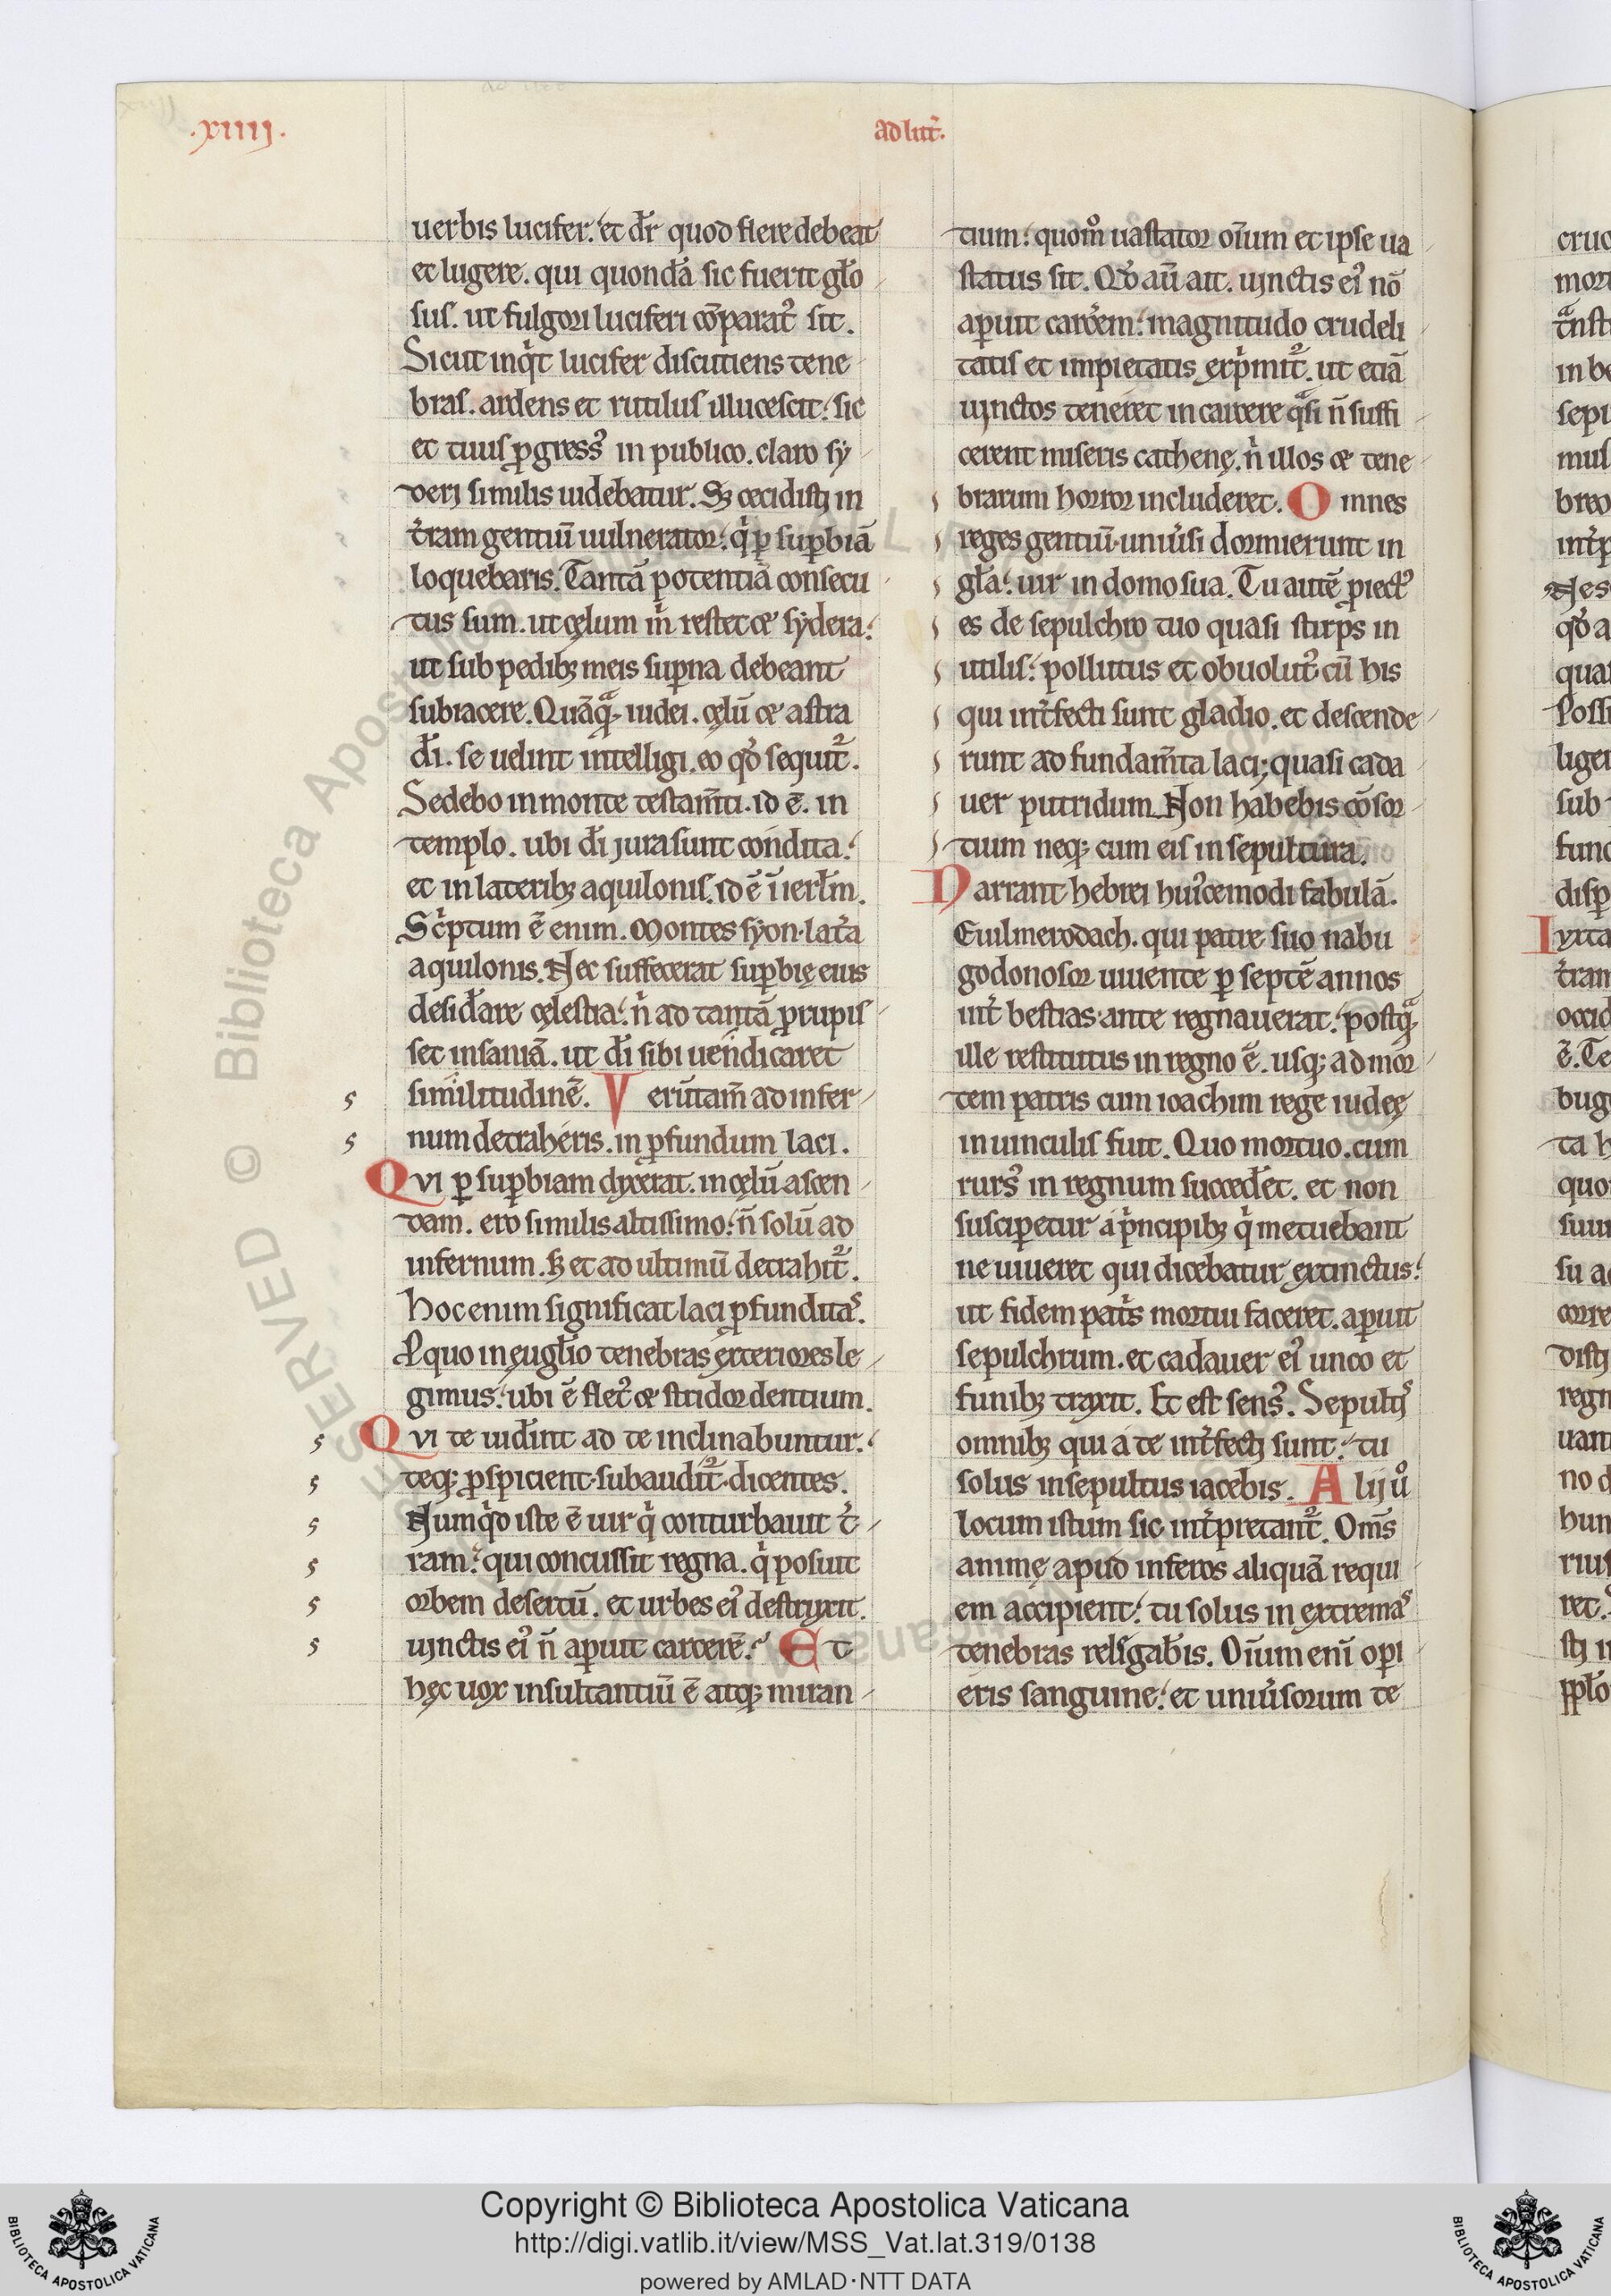 .xiiij.
ad litt̃.
uerbis lucifer. et dr̃ quod flere debeat
et lugere. qui quondã sic fuerit glo
sus. ut fulgori luciferi cõparat᷒ sit.
Sicut inqͥt lucifer discutiens tene
bras. ardens et rutilus illucescit. sic
et tuus ꝓgress᷒ in publico. claro sy
deri similis uidebatur. Sꝫ cecidisti in
t̃ram gentiũ uulnerator. qͥ ꝑ suꝑbiã
loquebaris. Tantã potentiã consecu
tus sum. ut cęlum m̃ restet ce sydera.
ut sub pedibꝫ meis suꝑna debeant
subiacere. Quãqͣꝫ iudei. cęlũ ce astra
dĩ. se uelint intelligi. eo qd̃ sequit᷑.
Sedebo in monte testam̃ti. id ẽ. in
templo. ubi dĩ jura sunt condita.
et in lateribꝫ aquilonis. id ẽ ĩ ierlm̃.
Scͥptum ẽ enim. Montes syon lat̃a
aquilonis. Nec suffecerat suꝑbię eius
desid̃are cęlestia. n̉ ad tantã ꝓrupis
set insaniã. ut dĩ sibi uendicaret
similitudinẽ. Verũtam̃ ad infer
num detraheris. in ꝓfundum laci.
Qvi ꝑ suꝑbiam dixerat. in cęlũ ascen
dam. ero similis altissimo. ñ solũ ad
infernum. sꝫ et ad ultimũ detrahit᷑.
Hoc enim significat laci ꝓfunditas.
P quo in euglio tenebras exteriores le
gimus. ubi ẽ flet᷒ ce stridor dentium.
Qvi te uid̃int ad te inclinabuntur.
teqꝫ ꝓspicient. subaudit᷑. dicentes.
Numqͥd iste ẽ uir qͥ conturbauit t̃
ram. qui concussit regna. qͥ posuit
orbem desertũ. et urbes ei᷒ destruxit.
uinctis ei᷒ ñ aperuit carcerẽ. Et
hęc uox insultantiũ ẽ atqꝫ miran
tium. quom̊ uastator oĩum et ipse ua
status sit. Qd̃ aũ ait. uinctis ei᷒ nõ
aꝑuit carc̃em. magnitudo crudeli
tatis et impietatis exp̃mit᷑. ut etiã
uinctos teneret in carcere qͣsi ñ suffi
cerent miseris cathenę. n̉ illos ce tene
brarum horror includeret. Omnes
reges gentiũ uniũsi dormierunt in
gla. uir in domo sua. Tu autẽ ꝓiect᷒
es de sepulchro tuo quasi stirps in
utilis. pollutus et obuolut᷒ cũ his
qui int̃fecti sunt gladio. et descende
runt ad fundam̃ta laci; quasi cada
uer putridum. Non habebis cõsor
tium neqꝫ cum eis in sepultura.
Narrant hebrei hui᷒cemodi fabulã.
Euilmerodach. qui patre suo nabu
godonosor uiuente ꝑ septẽ annos
int̃ bestias. ante regnauerat. postqͣꝫ
ille restitutus in regno ẽ. usqꝫ ad mor
tem patris cum ioachim rege iudeę
in uinculis fuit. Quo mortuo. cum
rurs᷒ in regnum succed̃et. et non
susciperetur a pͥncipibꝫ qͥ metuebant
ne uiueret qui dicebatur extinctus.
ut fidem pat̃s mortui faceret. aꝑuit
sepulchrum. et cadauer ei᷒ unco et
funibꝫ traxit. Et est sens᷒. Sepultis
omnibꝫ qui a te int̃fecti sunt. tu
solus insepultus iacebis. Alij ů
locum istum sic int̃pretant᷑. Oms̃
animę apud inferos aliquã requi
em accipient. tu solus in extremas
tenebras religab̃is. Oĩum enĩ opi
eris sanguine. et uniũsorum te
Copyright © Biblioteca Apostolica Vaticana
http://digi.vatlib.it/view/MSS_Vat.lat.319/0138
powered by AMLAD·NTT DATA
BIBLIOTECA APOSTOLICA VATICANA
BIBLIOTECA APOSTOLICA VATICANA